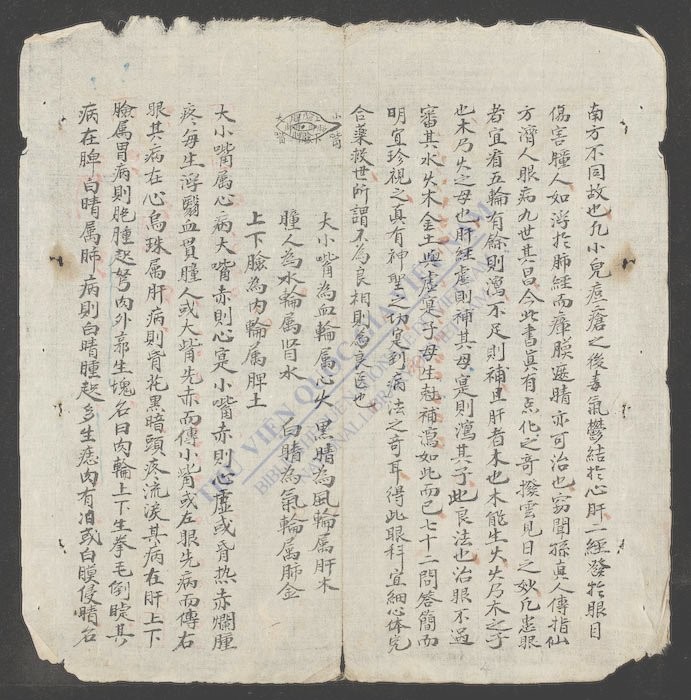 南方不同故也凢小兒痘瘡之後毒氣鬱結扵心肝二經發扵眼目
傷害瞳人如浮扵肺經而瘴膜遮睛亦可治也窃聞孫真人傳指仙
方濟人眼病九世其昌今此書真有点化之奇撥雲見日之妙凢患眼
者宜看五輪有餘則瀉不足則補且肝者木也木能生火火乃木之子
也木乃火之母也肝經虛則補其母寔則瀉其子此良法也治眼不過
審其水火木金土與虛寔子母生尅補瀉如此而已七十二問答簡而
明宜珍視之真有神聖之功寔到病法之奇耳得此眼科宜細心体究
合藥救世所謂不為良相則為良医也
小嘴
大嘴
大小嘴為血輪属心火 黑睛為風輪属肝木
瞳人為水輪属腎水 白睛為氣輪属肺金
上下臉為肉輪属脾土
大小嘴属心病大嘴赤則心寔小嘴赤則心虛或腎热赤爛腫
疼每生浮翳血貫瞳人或大嘴先赤而傳小嘴或左眼先病而傳右
眼其病在心烏珠属肝病則昏花黑暗頭疼流淚其病在肝上下
臉属胃病則胞腫起弩肉外亦生塊名曰肉輪上下生拳毛倒睫其
病在脾白睛属肺病則白睛腫起多生瘜肉有泪或白膜侵睛名
THƯ VIỆN QUỐC GIA VIỆT NAM
BIBLIOTHÈQUE NATIONALE DU VIETNAM
NATIONAL LIBRARY OF VIETNAM